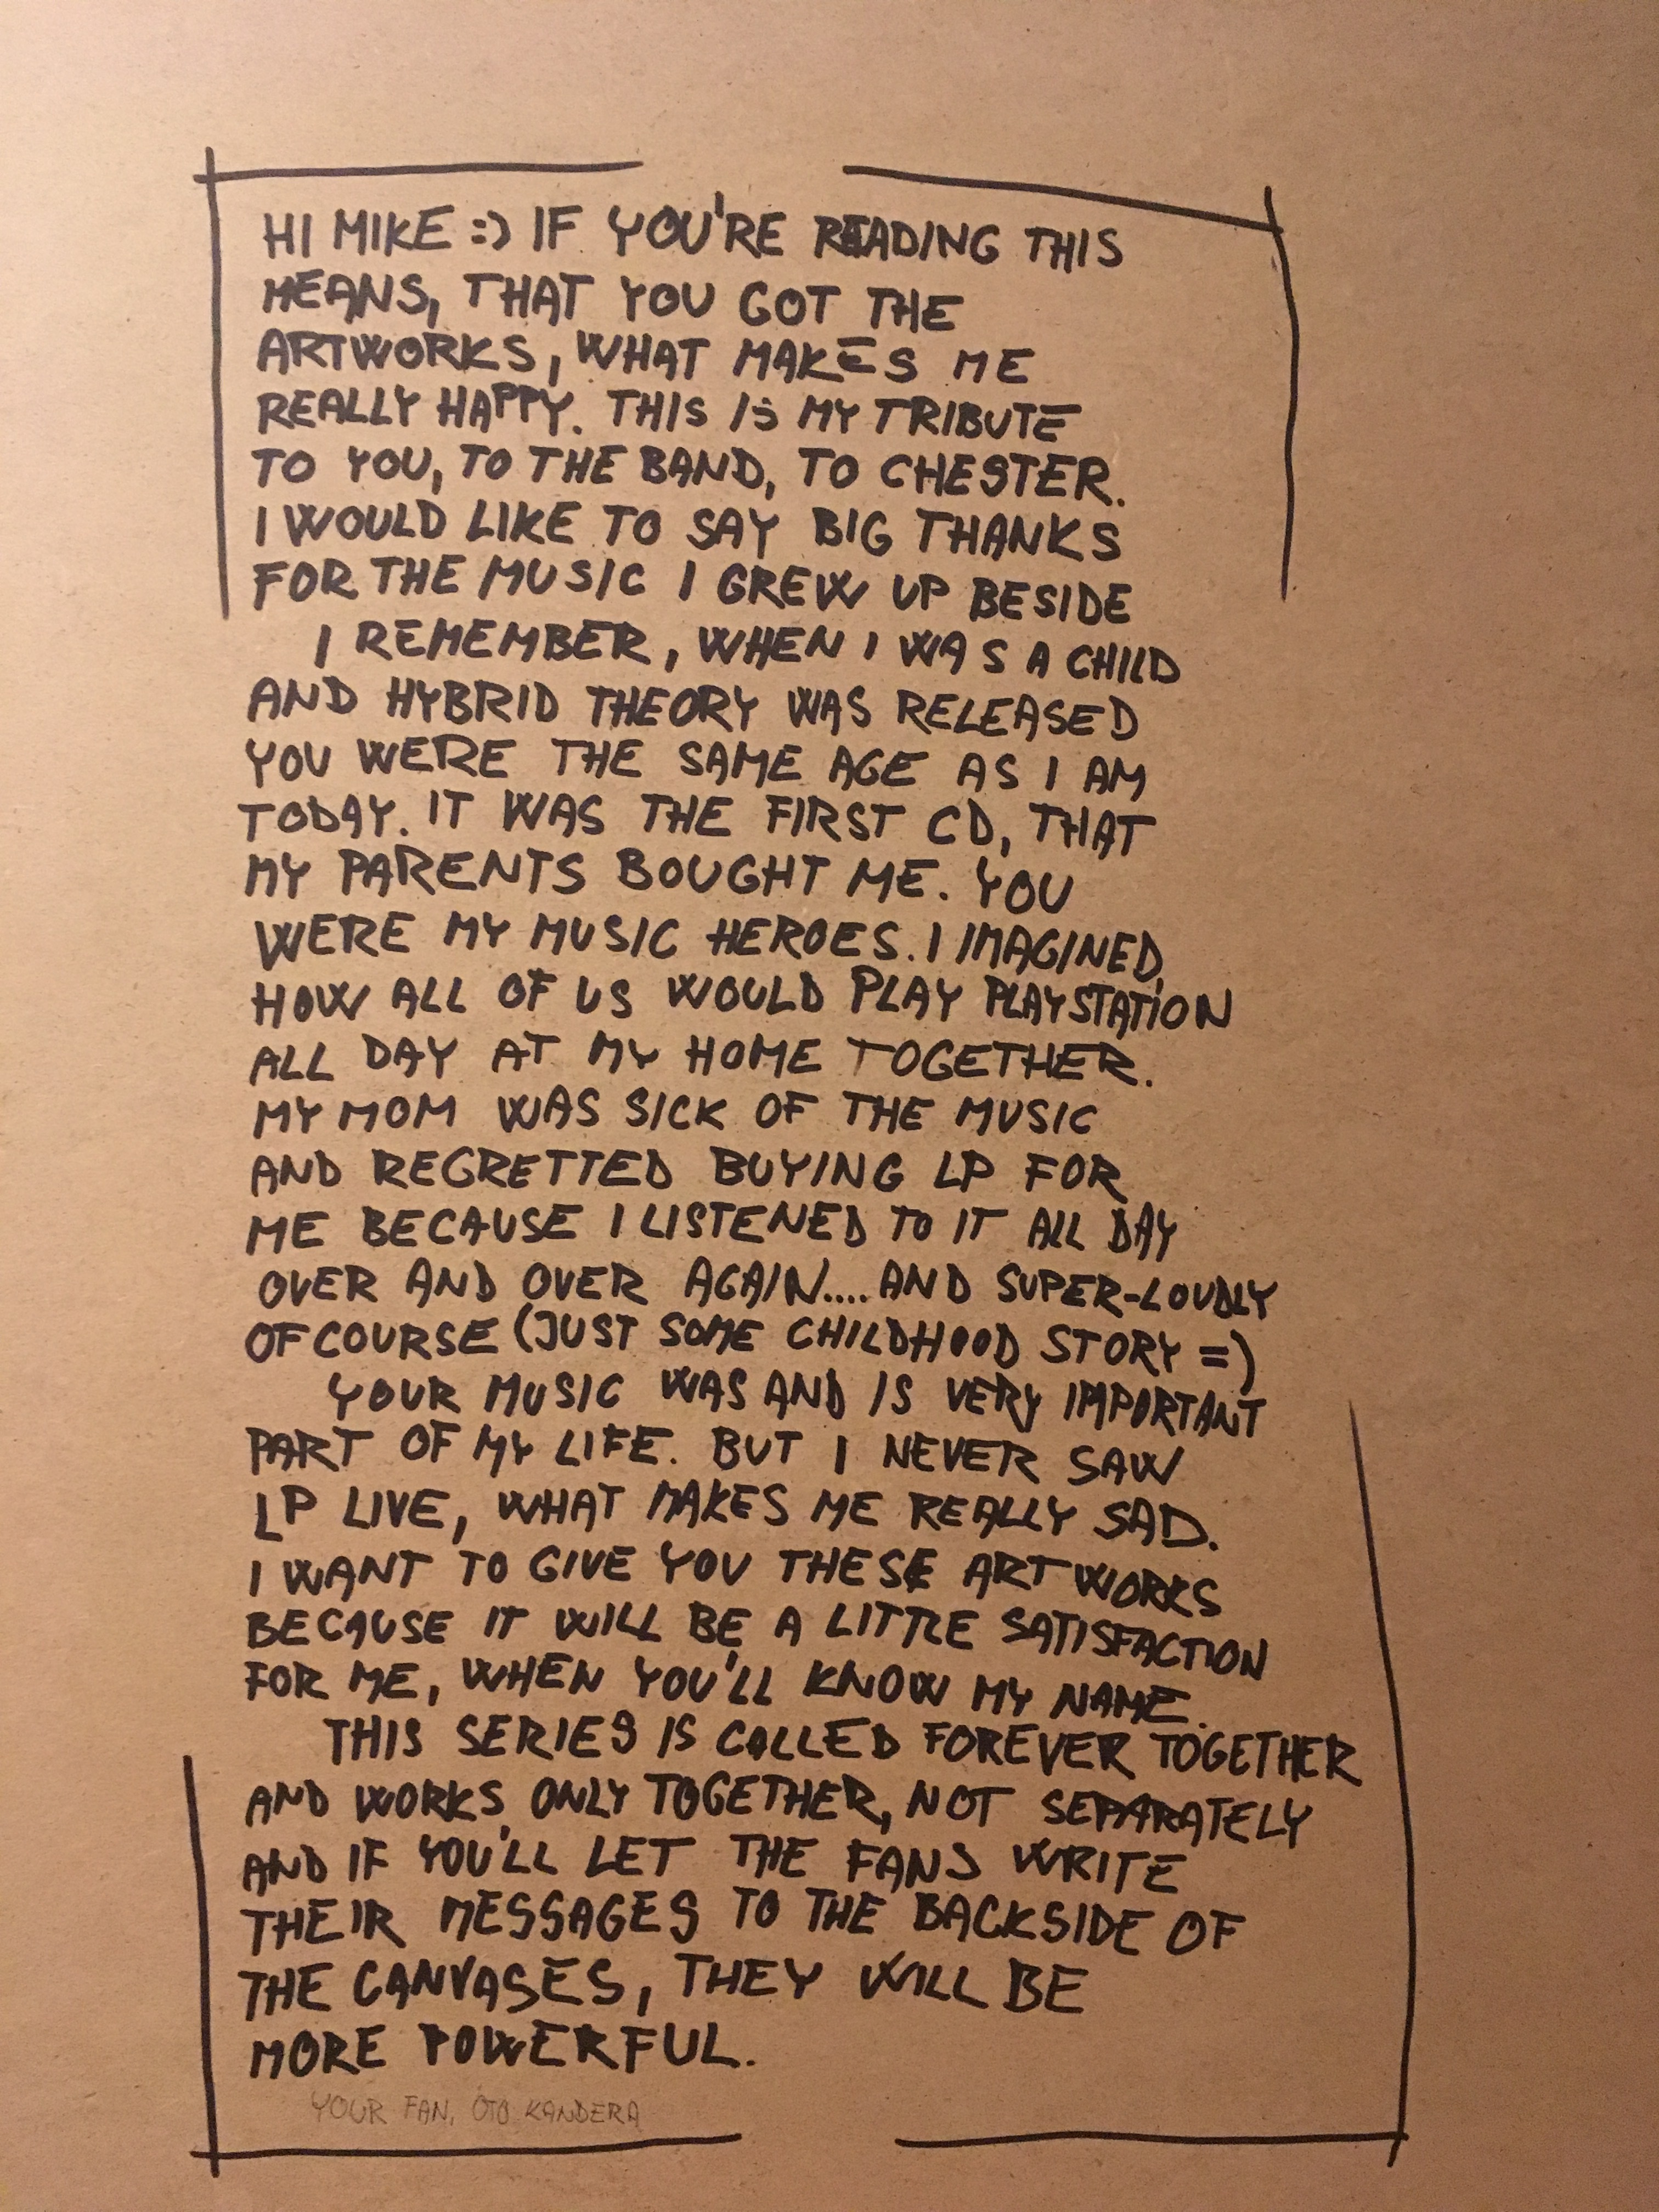 HI MIKE =) IF YOU'RE READING THIS
MEANS, THAT YOU GOT THE
ARTWORKS, WHAT MAKES ME
REALLY HAPPY. THIS IS MY TRIBUTE
TO YOU, TO THE BAND, TO CHESTER.
I WOULD LIKE TO SAY BIG THANKS
FOR THE MUSIC I GREW UP BESIDE
I REMEMBER, WHEN I WAS A CHILD
AND HYBRID THEORY WAS RELEASED
YOU WERE THE SAME AGE AS I AM
TODAY. IT WAS THE FIRST CD, THAT
MY PARENTS BOUGHT ME. YOU
WERE MY MUSIC HEROES. I IMAGINED,
HOW ALL OF US WOULD PLAY PLAYSTATION
ALL DAY AT MY HOME TOGETHER.
MY MOM WAS SICK OF THE MUSIC
AND REGRETTED BUYING LP FOR
ME BECAUSE I LISTENED TO IT ALL DAY
OVER AND OVER AGAIN.... AND SUPER-LOUDLY
OF COURSE (JUST SOME CHILDHOOD STORY =)
YOUR MUSIC WAS AND IS VERY IMPORTANT
PART OF MY LIFE. BUT I NEVER SAW
LP LIVE, WHAT MAKES ME REALLY SAD.
I WANT TO GIVE YOU THESE ARTWORKS
BECAUSE IT WILL BE A LITTLE SATISFACTION
FOR ME, WHEN YOU'LL KNOW MY NAME.
THIS SERIES IS CALLED FOREVER TOGETHER
AND WORKS ONLY TOGETHER, NOT SEPARATELY
AND IF YOU'LL LET THE FANS WRITE
THEIR MESSAGES TO THE BACKSIDE OF
THE CANVASES, THEY WILL BE
MORE POWERFUL.
YOUR FAN, OTO KANDERA